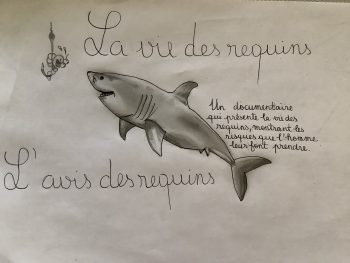 La vie des requins
Un documentaire
qui présente la vie des
requins, montrant les
risques que l'homme
leur font prendre.
L'avis des requins